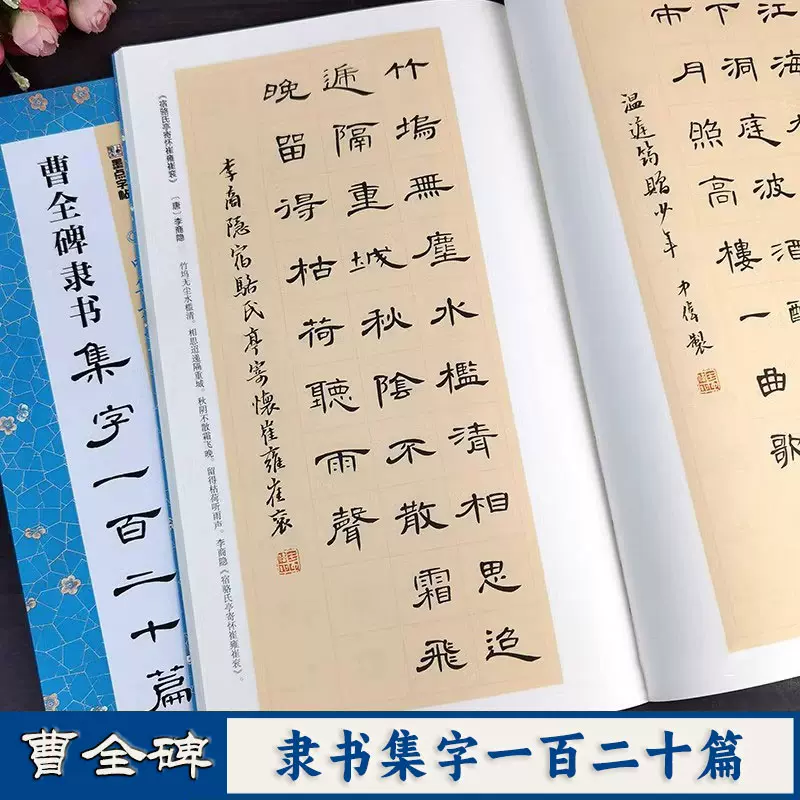 曹全碑隶书
集字一百二十篇
墨点字帖
江海
下洞庭波酒酣
市月照高樓一曲歌
温庭筠贈少年
竹塢無塵水檻清相思迢
遞隔重城秋陰不散霜飛
晚留得枯荷聽雨聲
李商隱宿駱氏亭寄懷崔雍崔衮
《宿骆氏亭寄怀崔雍崔衮》 〔唐〕李商隐
竹坞无尘水槛清,相思迢递隔重城。秋阴不散霜飞晚,留得枯荷听雨声。李商隐《宿骆氏亭寄怀崔雍崔衮》。
曹全碑
隶书集字一百二十篇